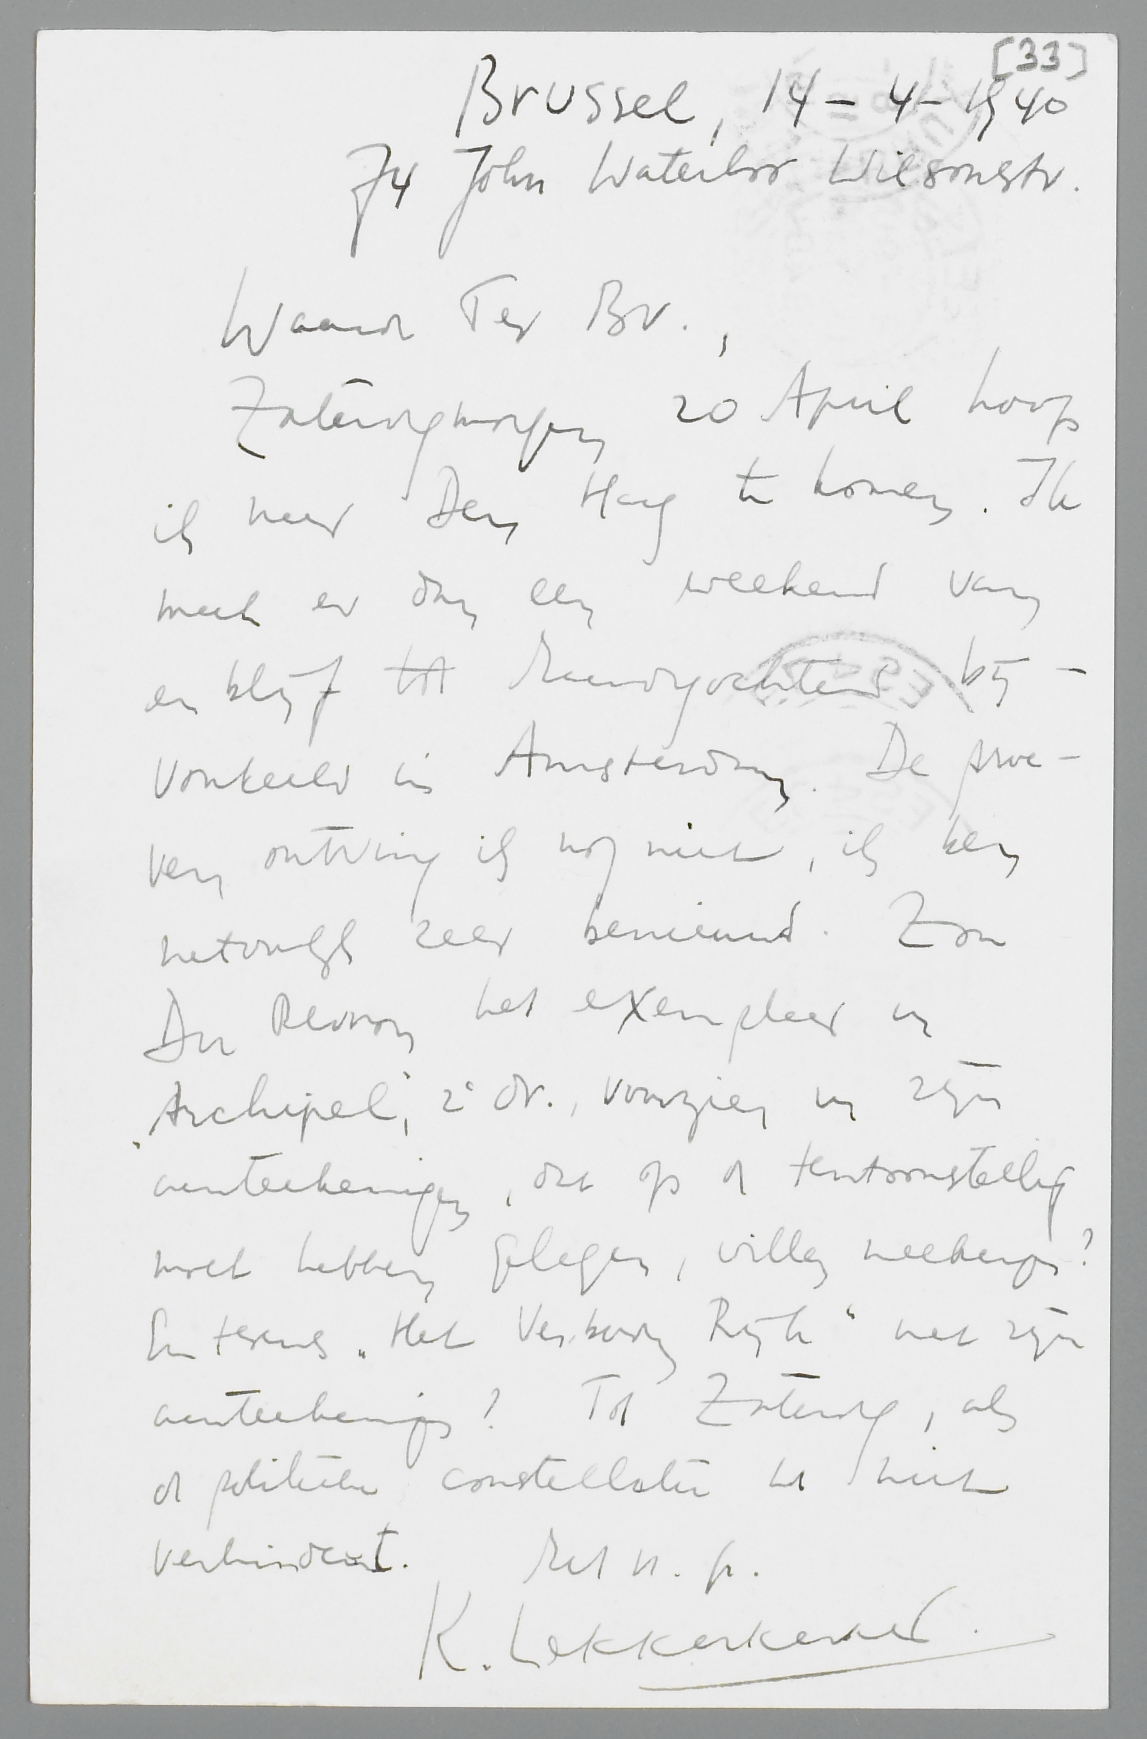 [33]
Brussel, 14-4-1940
74 John Waterloo Wilsonstr.
Waarde Ter Br.,
Zaterdagmorgen 20 April hoop
ik naar Den Haag te komen. Ik
maak er dan een weekend van
en blijf tot Maandagochtend bij-
voorbeeld in Amsterdam. De proe-
ven ontving ik nog niet, ik ben
natuurlijk zeer benieuwd. Zou
Du Perron het exemplaar v
"Archipel", 2e dr., voorzien v zijn
aanteekeningen, dat op de tentoonstelling
moet hebben gelegen, willen meebrengen?
En tevens "Het Verboden Rijk" met zijn
aanteekeningen? Tot Zaterdag, als
de politieke constellatie het niet
verhindert. Met v. gr.
K. Lekkerkerker.